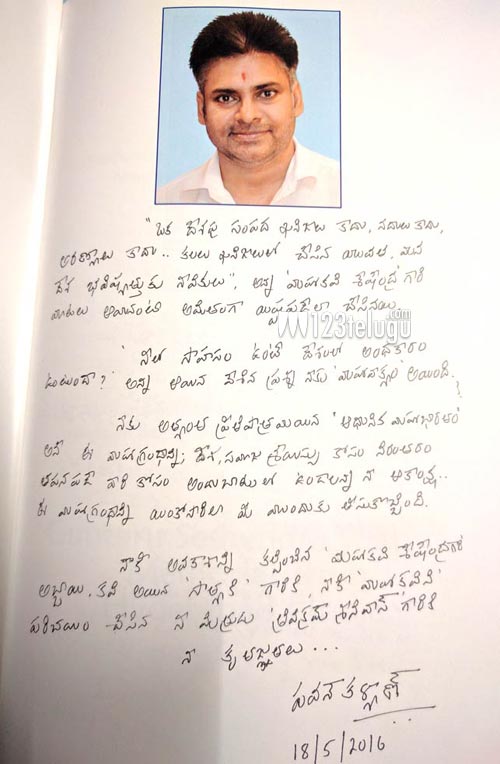 "ఒక దేశపు సంపద ఖనిజాలు కాదు, నదులు కాదు,
అరణ్యాలు కాదు.. కలలు ఖనిజాలతో చేసిన యువత. మన
దేశ భవిష్యత్తుకు నావికులు", అన్న 'మహాకవి శేషేంద్ర' గారి
మాటలు అమితంగా చేసినయి.
123telugu.com
'నీలో సాహసం ఉంటే దేశంలో అంధకారం
ఉంటుందా?' అన్న ఆయన వేసిన ప్రశ్న నాకు 'మహావాక్యం' అయింది.
నాకు అత్యంత ప్రీతిపాత్రమయిన 'ఆధునిక మహాభారతం'
అనే ఈ మహాగ్రంథాన్ని; దేశ, సమాజ శ్రేయస్సు కోసం నిరంతరం
తపన పడే వారి కోసం అందుబాటులో ఉండాలన్న నా ఆకాంక్ష..
ఈ మహాగ్రంథాన్ని యింకోసారిలా మీ ముందుకు తీసుకొచ్చింది.
నాకీ అవకాశాన్ని కల్పించిన 'మహాకవి శేషేంద్ర' గారి
అబ్బాయి. కవి అయిన 'సాత్యకి' గారికి, నాకీ 'మహాకవిని'
పరిచయం చేసిన నా మిత్రుడు 'త్రివిక్రమ్ శ్రీనివాస్' గారికి
నా కృతజ్ఞతలు ...
పవన్ కళ్యాణ్
18/5/2016